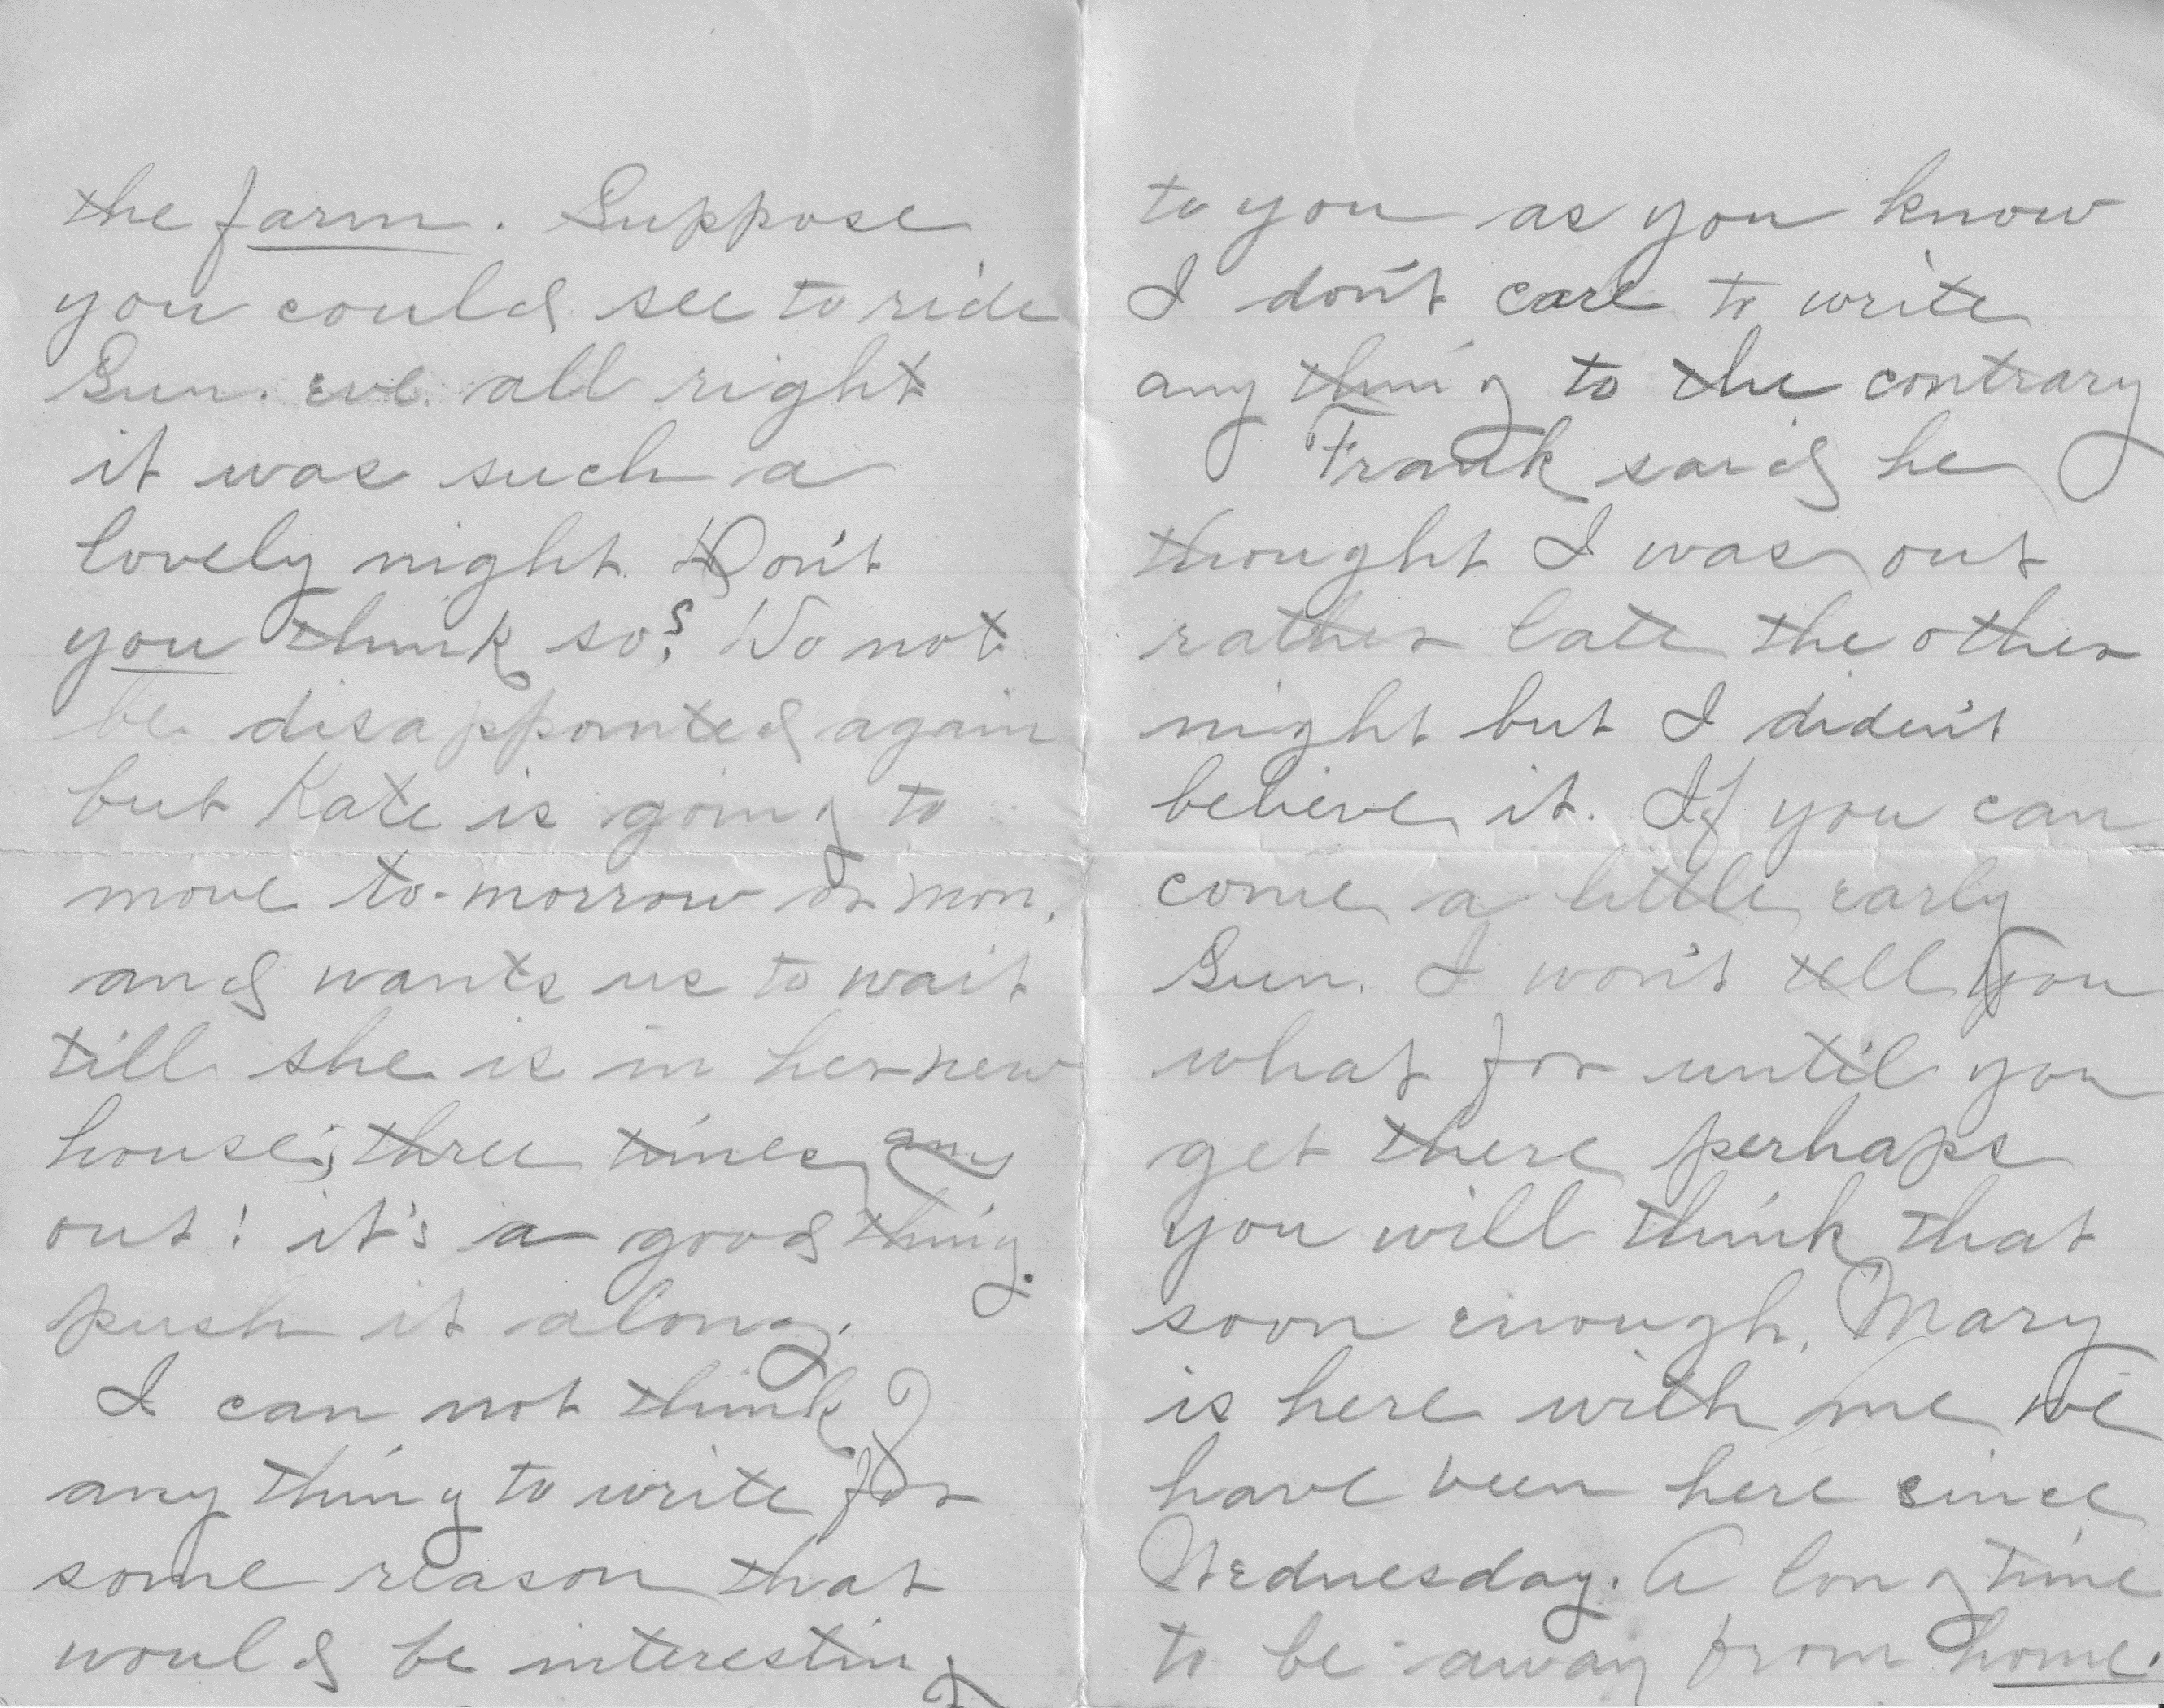 the farm. Suppose
you could see to ride
Sun. eve. all right
it was such a
lovely night. Don't
you think so? Do not
be disappointed again
but Kate is going to
move to-morrow or Mon.
and wants us to wait
till she is in her new
house; three times and
out! it's a good thing.
push it along.
I can not think
any thing to write for
some reason that
would be interesting
to you as you know
I don't care to write
any thing to the contrary
Frank said he
thought I was out
rather late the other
night but I diden't
believe it. If you can
come a little early
Sun. I won't tell you
what for until you
get there perhaps
you will think that
soon enough. Mary
is here with me we
have been here since
Wednesday. A long time
to be away from home.